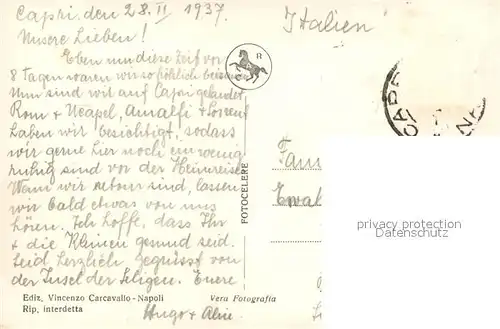 Capri, den 28. II 1937.
Italien
Unsere Lieben!
Eben um diese Zeit vor
8 Tagen waren wir so fröhlich beisamen
Nun sind wir auf Capri gelandet
Rom + Neapel, Amalfi + Sorrent
haben wir besichtigt, sodass
wir gerne hier noch ein wenig
ruhig sind vor der Heimreise
Wann wir retour sind, lassen
wir bald etwas von uns
hören. Ich hoffe, dass Ihr
+ die Kleinen gesund seid.
Seid herzlich gegrüsst von
der Insel der Seligen. Euere
Hugo + Aline
R
CAPR
FOTOCELERE
Fam
Ewal
privacy protection
Ediz. Vincenzo Carcavallo - Napoli
Rip. interdetta
Vera Fotografia